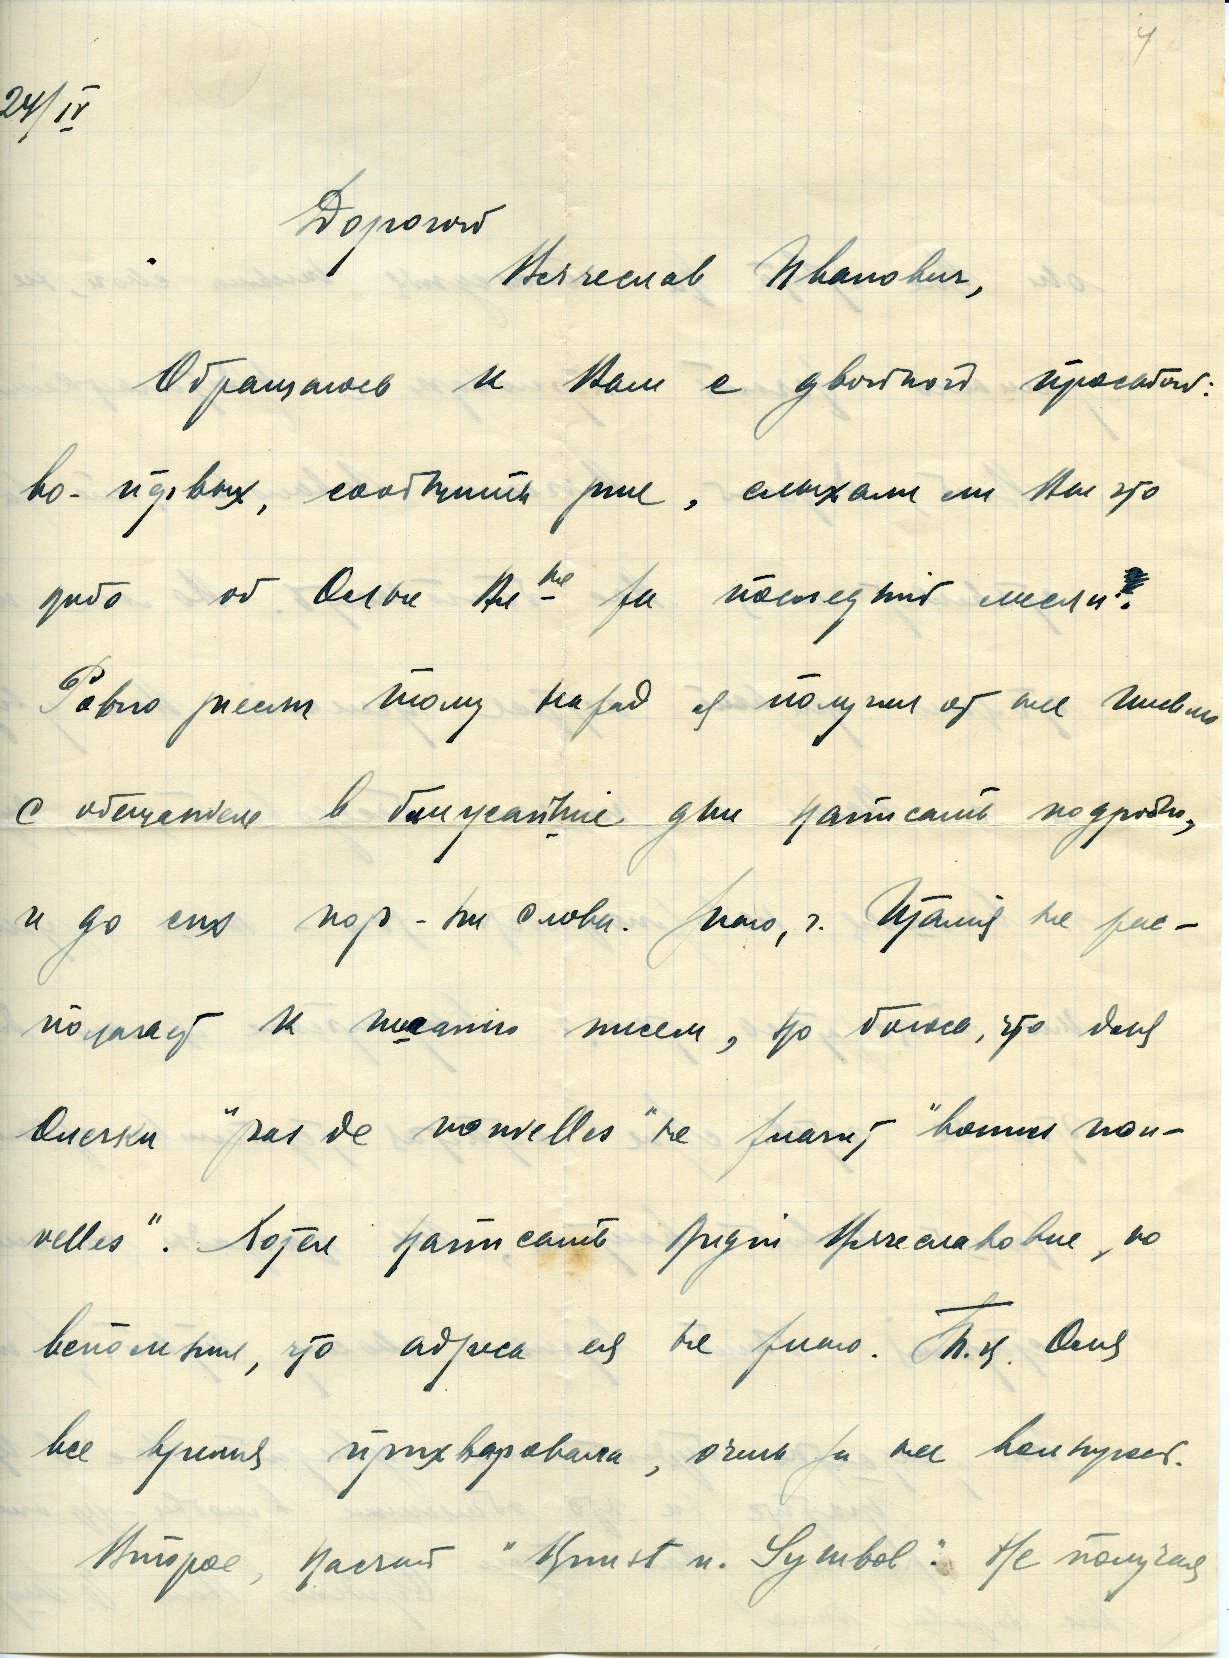 4
24/IV
Дорогой
Вячеслав Иванович,
Обращаюсь к Вам с двойной просьбой:
во-первых, сообщить мне, слыхали ли Вы что
либо от Ольги Ал<sup>не</sup> за последній месяц?
Ровно месяц тому назад я получил от нее письмо
с обещаніем в ближайшіе дни написать подробно,
и до сих пор - ни слова. Знаю, ч. Италія не рас-
полагает к писанію писем, но боюсь, что для
Олечки "pas de nouvelles" не значит "bonnes nou-
velles". Хотел написать Лидіи Вячеславовне, но
вспомнил, что адреса ея не знаю. Т.к. Оля
все время прихварывала, очень за нее волнуюсь.
Второе, насчет "Kunst u. Symbol". Не получая